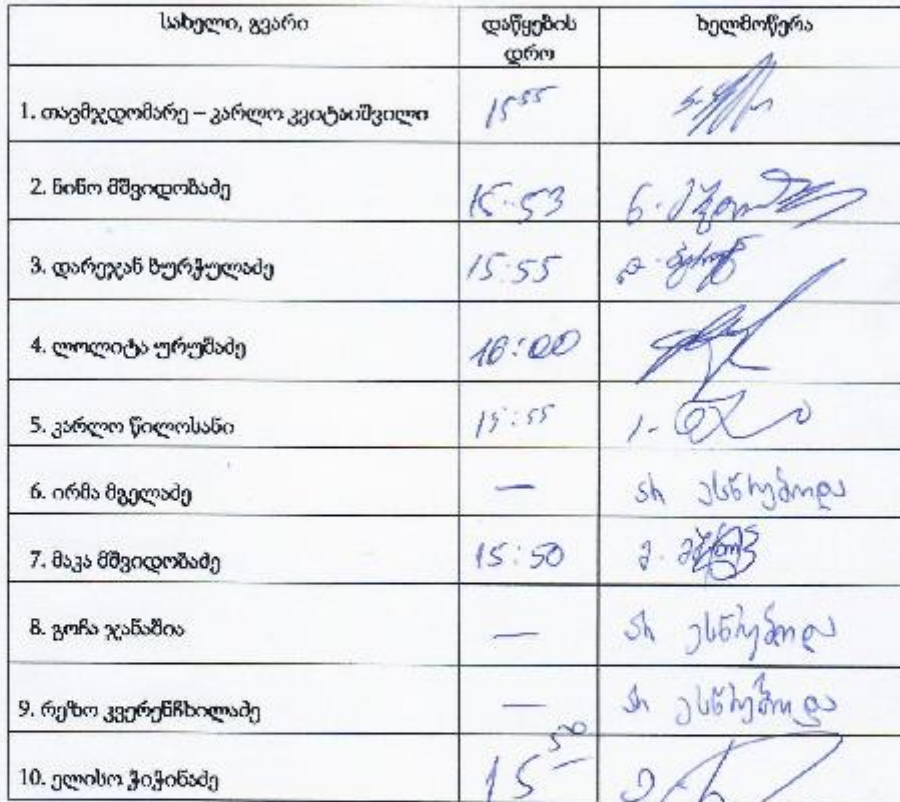 სახელი, გვარი დაწყების ხელმოწერა
დრო
1. თავმჯდომარე – კარლო კვიტაიშვილი 15⁵⁵
2. ნინო მშვიდობაძე 15.53
3. დარეჯან ხურჭულაძე 15:55
4. ლოლიტა ურუშაძე 16:00
5. კარლო წილოსანი 15:55
6. ირმა მგელაძე — არ ესწრებოდა
7. მაკა მშვიდობაძე 15:50
8. გოჩა ჯანაშია — არ ესწრებოდა
9. რეზო კვერენჩხილაძე — არ ესწრებოდა
10. ელისო ჭიჭინაძე 15⁵⁰